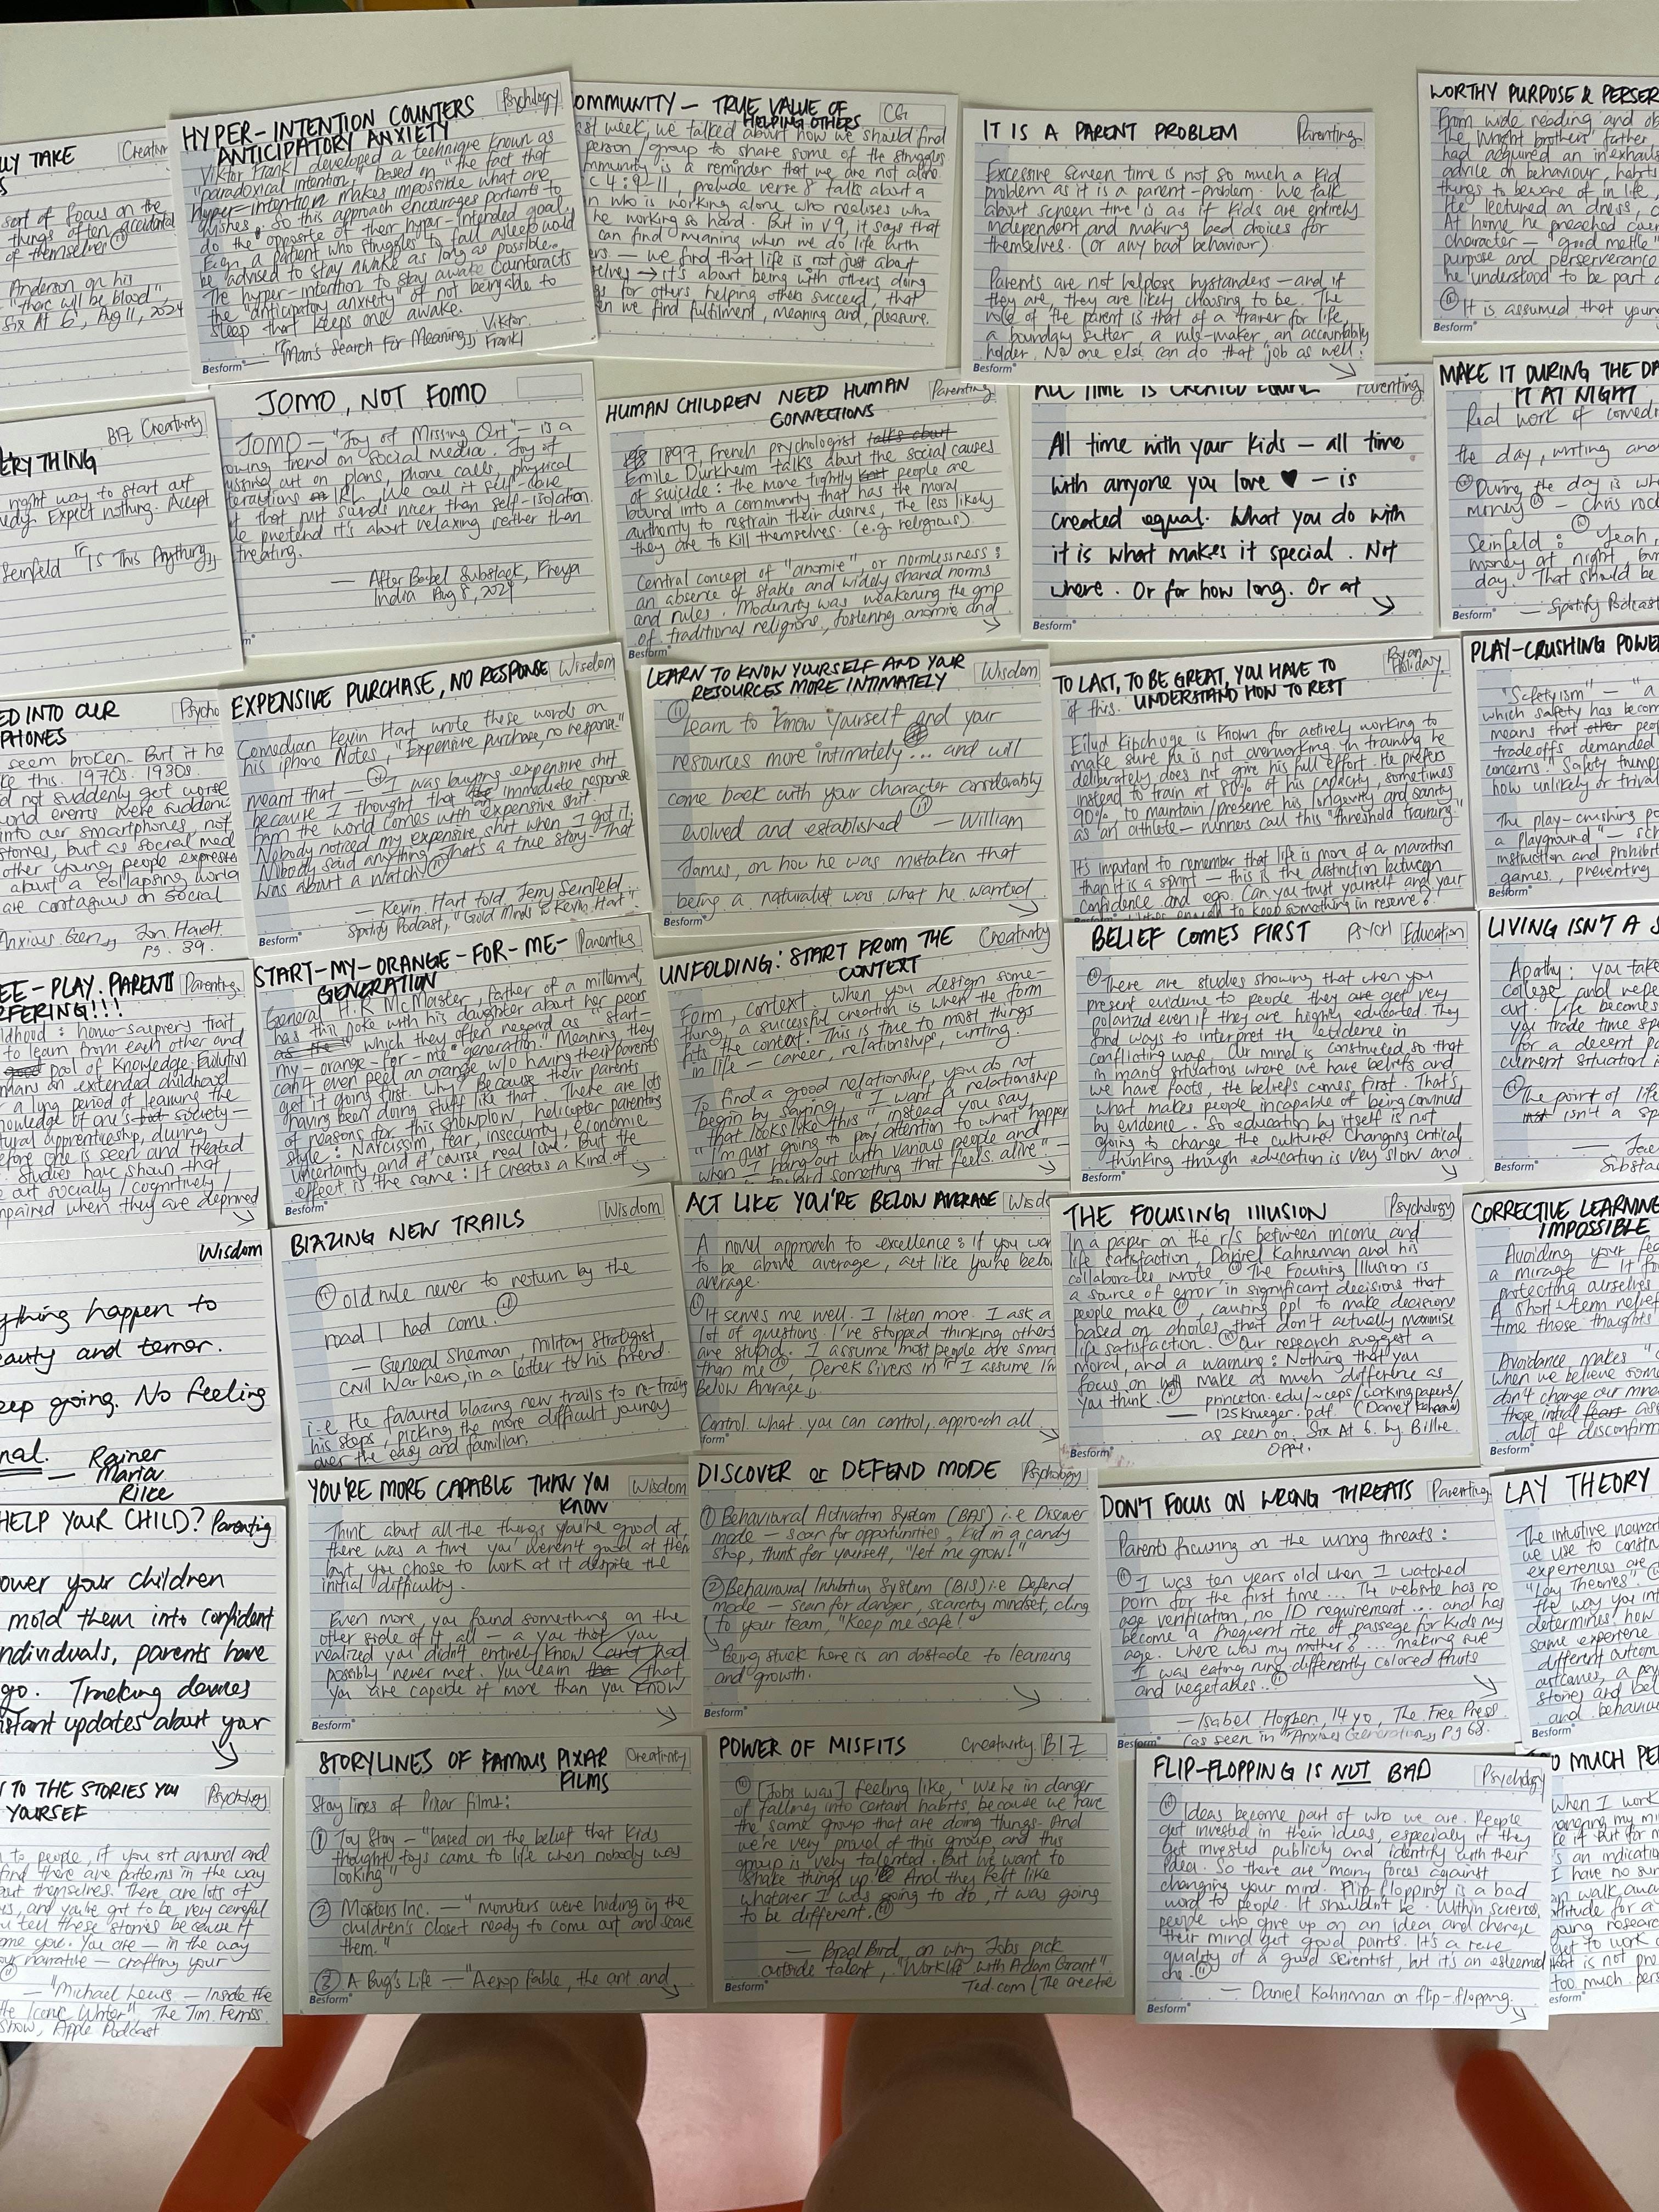 LLY TAKE
Creativ
sort of focus on the
things often accidental
of themselves"
Anderson on his
"there will be blood"
Six At 6, Aug 11, 2024
HYPER-INTENTION COUNTERS
ANTICIPATORY ANXIETY
Psychology
Viktor Frankl developed a technique known as
"paradoxical intention," based on "the fact that
hyper-intention makes impossible what one
wishes". So this approach encourages patients to
do the opposite of their hyper-intended goal.
Even a patient who struggles to fall asleep would
be advised to stay awake as long as possible.
The hyper-intention to stay awake counteracts
the "anticipatory anxiety" of not being able to
sleep that keeps one awake.
— "Man's Search For Meaning", Viktor
Frankl
Besform
OMMUNITY — TRUE VALUE OF
HELPING OTHERS
CG
st week, we talked about how we should find
person/group to share some of the struggles
mmunity is a reminder that we are not alone.
c 4:9-11, prelude verse 8 talks about a
n who is working alone who realises wha
he working so hard. But in v9, it says that
can find meaning when we do life with
ers — we find that life is not just about
selves → it's about being with others doing
gs for others helping others succeed, that
en we find fulfilment, meaning and pleasure.
IT IS A PARENT PROBLEM
Parenting
Excessive screen time is not so much a kid
problem as it is a parent-problem. We talk
about screen time is as if kids are entirely
independent and making bad choices for
themselves. (or any bad behaviour).
Parents are not helpless bystanders — and if
they are, they are likely choosing to be. The
role of the parent is that of a trainer for life,
a boundary setter, a rule-maker, an accountability
holder. No one else can do that job as well.
WORTHY PURPOSE & PERSER
From wide reading and ob
The Wright brothers' father
had acquired an inexhaus
advice on behaviour, habits
things to beware of in life,
He lectured on dress, c
At home he preached cour
character — "good mettle"
purpose and perseverance
he understood to be part o
It is assumed that young
Besform
BIZ Creativity
ERYTHING
right way to start out
edy. Expect nothing. Accept
Seinfeld "Is This Anything"
JOMO, NOT FOMO
JOMO — "Joy of Missing Out" — is a
rowing trend on social media. Joy of
missing out on plans, phone calls, physical
teractions IRL. We call it self-care
t that sounds nicer than self-isolation.
We pretend it's about relaxing rather than
treating.
— After Babel Substack, Freya
India Aug 8, 2024
HUMAN CHILDREN NEED HUMAN
CONNECTIONS
Parenting
1897, French psychologist talks about
Emile Durkheim talks about the social causes
of suicide: the more tightly people are
bound into a community that has the moral
authority to restrain their desires, the less likely
they are to kill themselves. (e.g religious)
Central concept of "anomie", or normlessness:
an absence of stable and widely shared norms
and rules. Modernity was weakening the grip
of traditional religions, fostering anomie and
Besform
ALL TIME IS CREATED EQUAL
Parenting
All time with your kids — all time
with anyone you love ♥ — is
created equal. What you do with
it is what makes it special. Not
where. Or for how long. Or at
Besform
MAKE IT DURING THE DA
IT AT NIGHT
Real work of comedi
the day, writing and
During the day is wh
money" — Chris rock
Seinfeld: "Yeah,
money at night, but
day. That should be
— Spotify Podcast
Besform
ED INTO OUR
PHONES
Psycho
seem broken. But it ha
ke this. 1970s. 1930s.
d not suddenly get worse
world events were suddenl
into our smartphones, not
stories, but as social med
other young people express
about a collapsing world
are contagious on social
Anxious Gen", Jon. Haidt.
pg. 39.
EXPENSIVE PURCHASE, NO RESPONSE
Wisdom
Comedian Kevin Hart wrote these words on
his iphone Notes, "Expensive purchase, no response."
meant that — "I was buying expensive shit
because I thought that an immediate response
from the world comes with expensive shit.
Nobody noticed my expensive shit when I got it.
Nobody said anything. That's a true story. That
was about a watch."
— Kevin Hart told Jerry Seinfeld.
Spotify Podcast, "Gold Minds w Kevin Hart".
Besform
LEARN TO KNOW YOURSELF AND YOUR
RESOURCES MORE INTIMATELY
Wisdom
"learn to know yourself and your
resources more intimately... and will
come back with your character considerably
evolved and established" — William
James, on how he was mistaken that
being a naturalist was what he wanted
Besform
TO LAST, TO BE GREAT, YOU HAVE TO
UNDERSTAND HOW TO REST
Ryan
Holiday
of this.
Eilud Kipchoge is known for actively working to
make sure he is not overworking. In training he
deliberately does not give his full effort. He prefers
instead to train at 80% of his capacity, sometimes
90%, to maintain/preserve his longevity and sanity
as an athlete — runners call this "threshold training"
It's important to remember that life is more of a marathon
than it is a sprint — this is the distinction between
confidence and ego. Can you trust yourself and your
to keep something in reserve?
PLAY-CRUSHING POWE
"Safetyism" — "a
which safety has becom
means that peop
tradeoffs demanded
concerns." Safety trumps
how unlikely or trival
The play-crushing po
a playground" — sch
instruction and prohibit
games, preventing
Besform
EE-PLAY. PARENTS
RFERING!!!
Parenting
ldhood: homo-sapiens trait
to learn from each and other
pool of knowledge. Evolution
means an extended childhood
r a long period of learning the
nowledge of one's society —
tural apprenticeship, during
efore one is seen and treated
. Studies have shown that
e out socially/cognitively/
mpaired when they are deprived
START-MY-ORANGE-FOR-ME-
GENERATION
Parenting
General H.R McMaster, father of a millennial,
has this joke with his daughter about her peers
which they often regard as "start-
my-orange-for-me generation" Meaning they
can't even peel an orange w/o having their parents
get it going first. Why? Because their parents
having been doing stuff like that. There are lots
of reasons for this snowplow, helicopter parenting
style: Narcissim, fear, insecurity, economic
uncertainty, and of course real love. But the
effect is the same: It creates a kind of
Besform
UNFOLDING: START FROM THE
CONTEXT
Creativity
Form, context. When you design some-
thing, a successful creation is when the form
fits the context. This is true to most things
in life — career, relationships, writing.
To find a good relationship, you do not
begin by saying "I want a relationship
that looks like this", instead you say
"I'm just going to pay attention to what happen
when I hang out with various people and
something that feels alive" —
BELIEF COMES FIRST
PSYCH
Education
"There are studies showing that when you
present evidence to people they are get very
polarized even if they are highly educated. They
find ways to interpret the evidence in
conflicting ways. Our mind is constructed so that
in many situations where we have beliefs and
we have facts, the beliefs comes first. That's
what makes people incapable of being convinced
by evidence. So education by itself is not
going to change the culture. Changing critical
thinking through education is very slow and
Besform
LIVING ISN'T A S
Apathy: you take
college and repe
art. Life becomes
you trade time spe
for a decent pa
current situation i
"The point of life
isn't a sp
Substac
Besform
Wisdom
ything happen to
eauty and terror.
eep going. No feeling
nal.
— Rainer
Maria
Rilke
BLAZING NEW TRAILS
Wisdom
"old rule never to return by the
road I had come."
— General Sherman, Military Strategist,
Civil War hero, in a letter to his friend.
i.e. He favoured blazing new trails to re-tracing
his steps, picking the more difficult journey
over the easy and familiar.
ACT LIKE YOU'RE BELOW AVERAGE
Wisd
A novel approach to excellence: if you wan
to be above average, act like you're belo
average.
"It serves me well. I listen more. I ask a
lot of questions. I've stopped thinking others
are stupid. I assume most people are smart
than me", Derek Sivers in "I assume I'm
Below Average"
Control what you can control, approach all
form
THE FOCUSING ILLUSION
Psychology
In a paper on the r/s between income and
life satisfaction, Daniel Kahneman and his
collaborates wrote "The Focusing Illusion is
a source of error in significant decisions that
people make", causing ppl to make decisions
based on choices that don't actually maximise
life satisfaction. "Our research suggest a
moral, and a warning: Nothing that you
focus on will make as much difference as
you think."
— princeton.edu/~ceps/workingpapers/
125Krueger.pdf. (Daniel Kahneman)
as seen on Six At 6 by Billie
Oppe.
Besform
CORRECTIVE LEARNING
IMPOSSIBLE
Avoiding your fea
a mirage — it fo
protecting ourselves
A short-term relief
time those thoughts
Avoidance makes "c
when we believe some
don't change our mind
those initial fears ass
alot of disconfirm
HELP YOUR CHILD?
Parenting
ower your children
mold them into confident
individuals, parents have
go. Tracking devices
nstant updates about your
YOU'RE MORE CAPABLE THAN YOU
KNOW
Wisdom
Think about all the things you're good at,
there was a time you weren't good at them
but you chose to work at it despite the
initial difficulty.
Even more, you found something on the
other side of it all — a you that you
realized you didn't entirely know and had
possibly never met. You learn that
you are capable of more than you know
Besform
DISCOVER or DEFEND MODE
Psychology
① Behavioural Activation System (BAS) i.e Discover
mode — scan for opportunities, kid in a candy
shop, think for yourself, "let me grow!"
② Behavioural Inhibition System (BIS) i.e Defend
mode — scan for danger, scarcity mindset, cling
to your team, "Keep me safe!"
Being stuck here is an obstacle to learning
and growth.
DON'T FOCUS ON WRONG THREATS
Parenting
Parents focusing on the wrong threats:
"I was ten years old when I watched
porn for the first time... The website has no
age verification, no ID requirement... and has
become a frequent rite of passage for kids my
age. Where was my mother?... making sure
I was eating nine differently colored fruits
and vegetables.."
— Isabel Hogben, 14 yo, The Free Press
(as seen in "Anxious Generation", Pg 68.
Besform
LAY THEORY
The intuitive
we use to constr
experiences are
"Lay Theories"
the way you int
determines how
same experience
different outcom
outcomes, a psy
stories and bel
and behaviou
Besform
N TO THE STORIES YOU
YOURSEF
Psychology
n to people, if you sit around and
find there are patterns in the way
out themselves. There are lots of
s, and you've got to be very careful
u tell these stories because it
ome you. You are — in the way
our narrative — crafting your
— "Michael Lewis — Inside the
the Iconic Writer" The Tim Ferriss
Show, Apple Podcast
STORYLINES OF FAMOUS PIXAR
FILMS
Creativity
Story lines of Pixar films:
① Toy Story — "based on the belief that kids
thought toys came to life when nobody was
looking"
② Monsters Inc. — "monsters were hiding in the
children's closet ready to come out and scare
them."
③ A Bug's Life — "Aesop fable, the ant and
Besform
POWER OF MISFITS
Creativity
BIZ
"[Jobs was] feeling like, 'We're in danger
of falling into certain habits, because we have
the same group that are doing things. And
we're very proud of this group and this
group is very talented. But we want to
shake things up.' And they felt like
whatever I was going to do, it was going
to be different."
— Brad Bird, on why Jobs pick
outside talent, "Worklife with Adam Grant"
Ted.com (The creative
Besform
FLIP-FLOPPING IS NOT BAD
Psychology
"Ideas become part of who we are. People
get invested in their ideas, especially if they
get invested publicity and identify with their
idea. So there are many forces against
changing your mind. Flip-flopping is a bad
word to people. It shouldn't be. Within science,
people who give up on an idea and change
their mind get good points. It's a rare
quality of a good scientist, but it's an esteemed
one."
— Daniel Kahnman on flip-flopping.
Besform
OO MUCH PER
When I work
changing my min
ke it but for m
's an indicatio
I have no sun
an walk awa
attitude for a
young research
get to work o
that is not pro
too much pers
esform